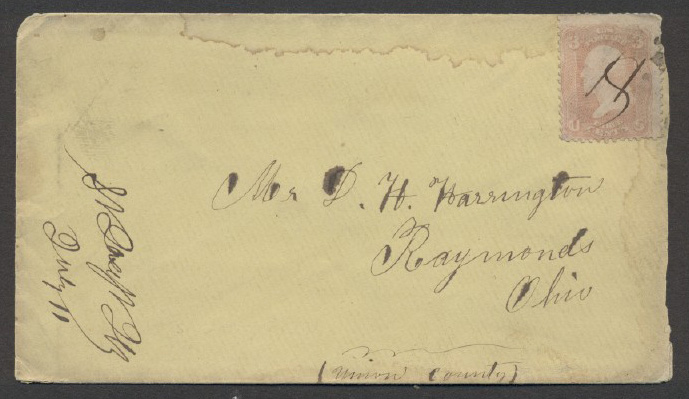 Mr D. H. Harrington
Raymonds
Ohio
(Union County)
July 11